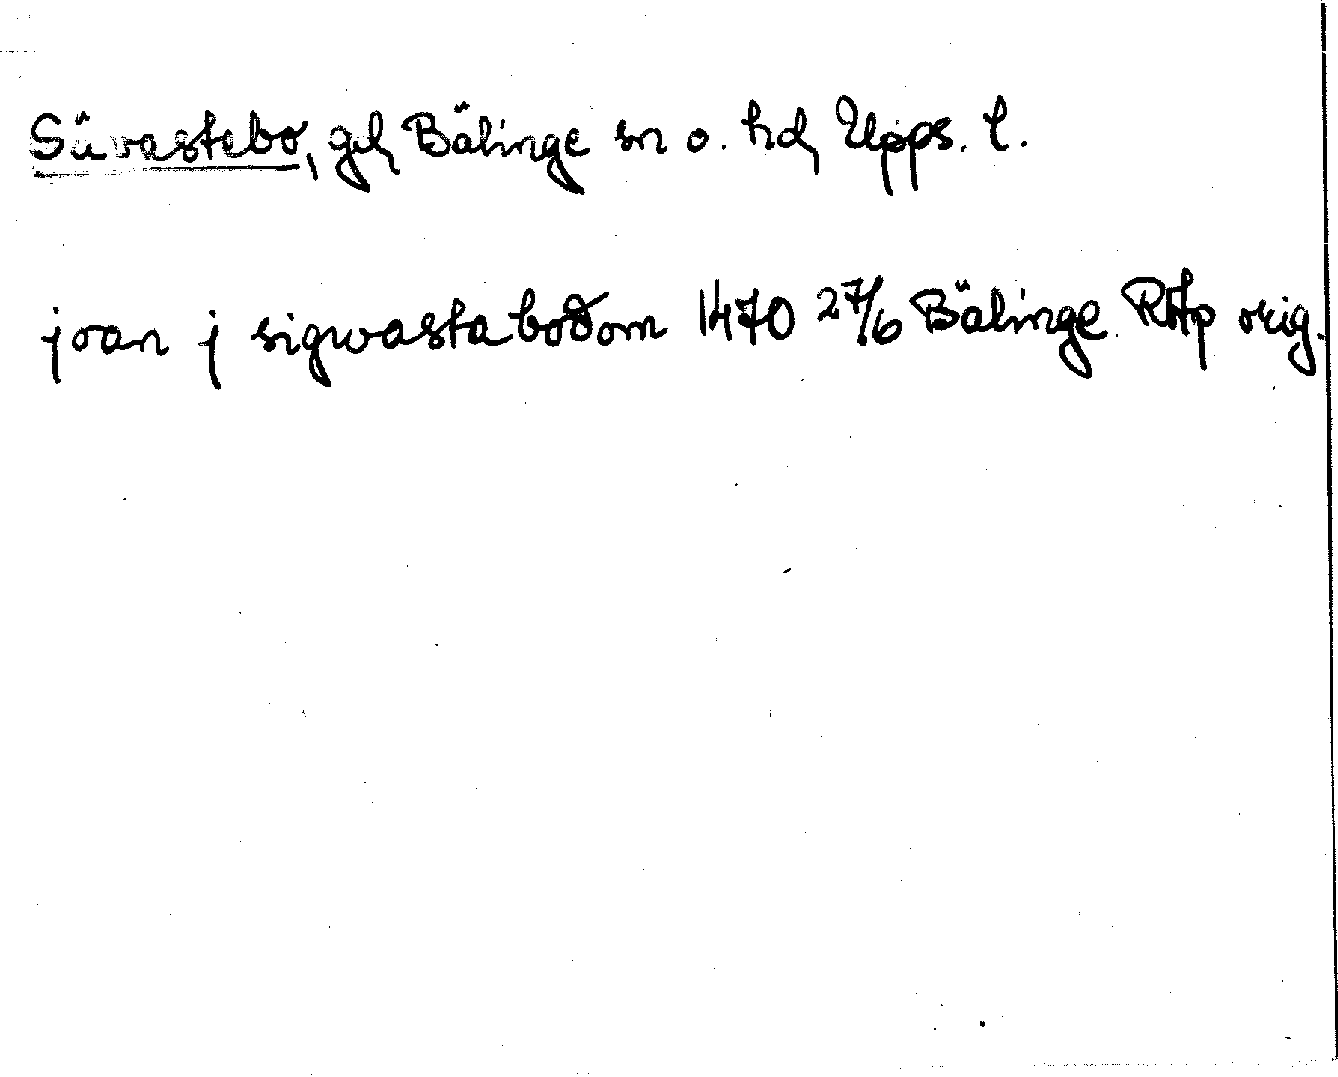 Sävastebo, gd, Bälinge sn o. hd, Upps. l.
joan j sigwasta bodom 1470 27/6 Bälinge RAp orig.